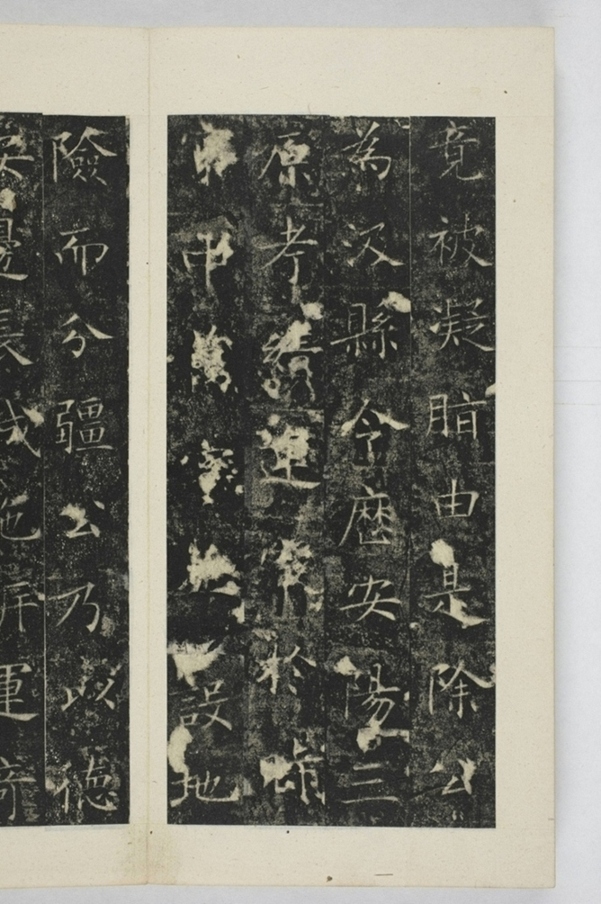 竟被凝脂由是除公
為汲縣令歷安陽三
原考績連於
中設地
險而分疆公乃以德
安邊長運奇